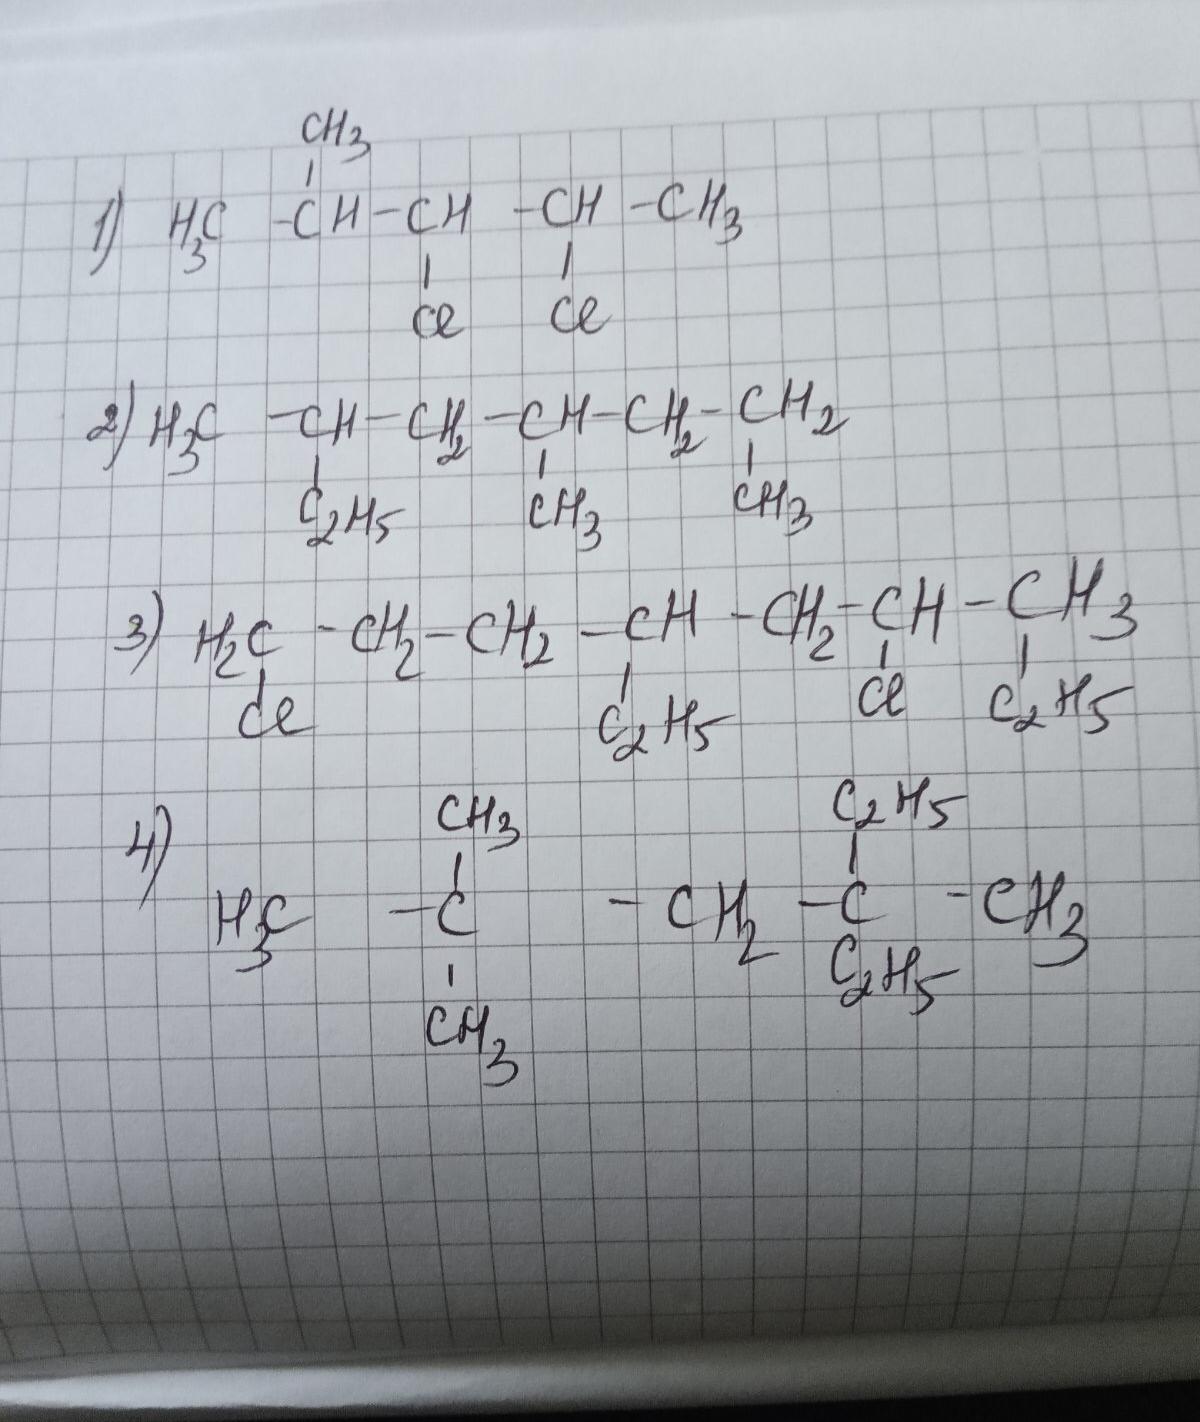 CH3
1) H3C -CH-CH -CH-CH3
Cl Cl
2) H3C -CH-CH2-CH-CH2-CH2
C2H5 CH3 CH3
3) H2C -CH2-CH2 -CH -CH2-CH-CH3
Cl C2H5 Cl C2H5
CH3 C2H5
4) H3C -C -CH2 -C -CH3
CH3 C2H5